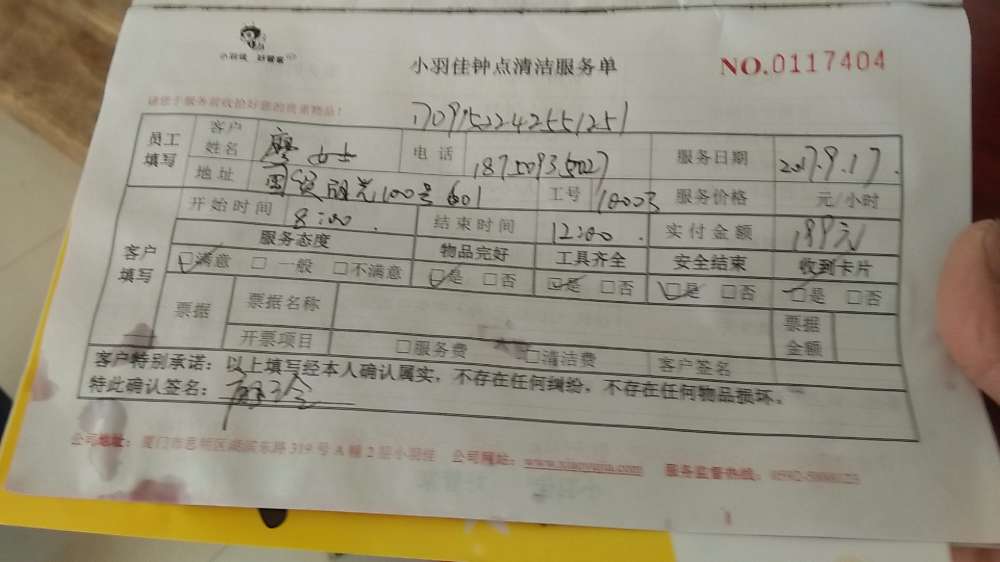 小羽佳 好管家
小羽佳钟点清洁服务单
NO.0117404
请您于服务前收拾好您的贵重物品!
员工填写 客户姓名 廖女士 电话 服务日期 2017.9.17.
地址 100号601 工号 服务价格 元/小时
开始时间 8:00 结束时间 12:00 实付金额 199元
客户填写 服务态度 物品完好 工具齐全 安全结束 收到卡片
☑满意 □一般 □不满意 ☑是 □否 ☑是 □否 ☑是 □否 ☑是 □否
票据 票据名称 票据金额
开票项目 □服务费 □清洁费 客户签名
客户特别承诺:以上填写经本人确认属实,不存在任何纠纷,不存在任何物品损坏。
特此确认签名:
公司地址:厦门市思明区湖滨东路319号A幢2层小羽佳 公司网站:www.xiaoyujia.com 服务监督热线: